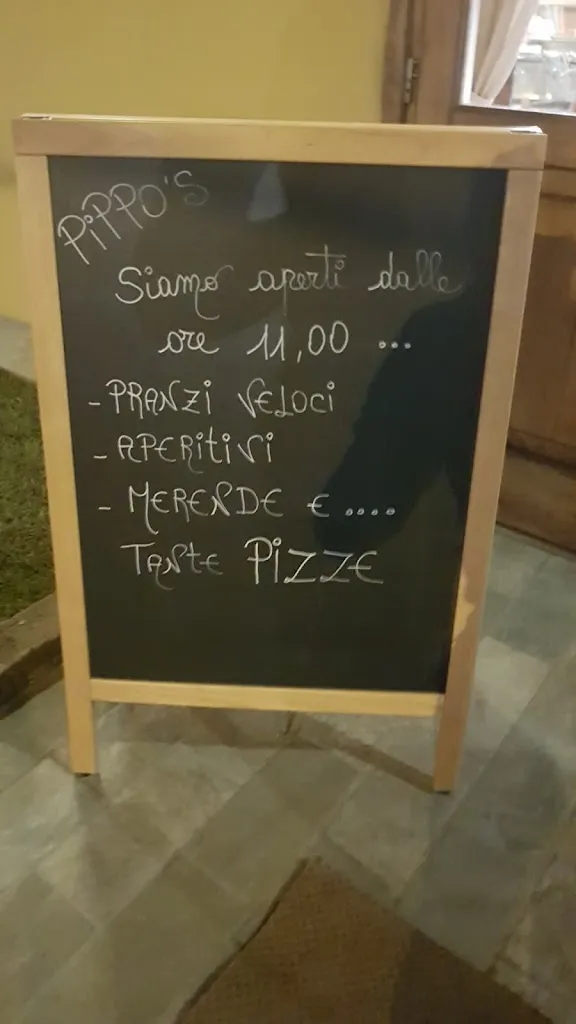 PiPPO'S
Siamo aperti dalle
ore 11,00 ...
- PRANZi VELOCi
- APERitiVi
- MERENDE E ....
TANtE PiZZE